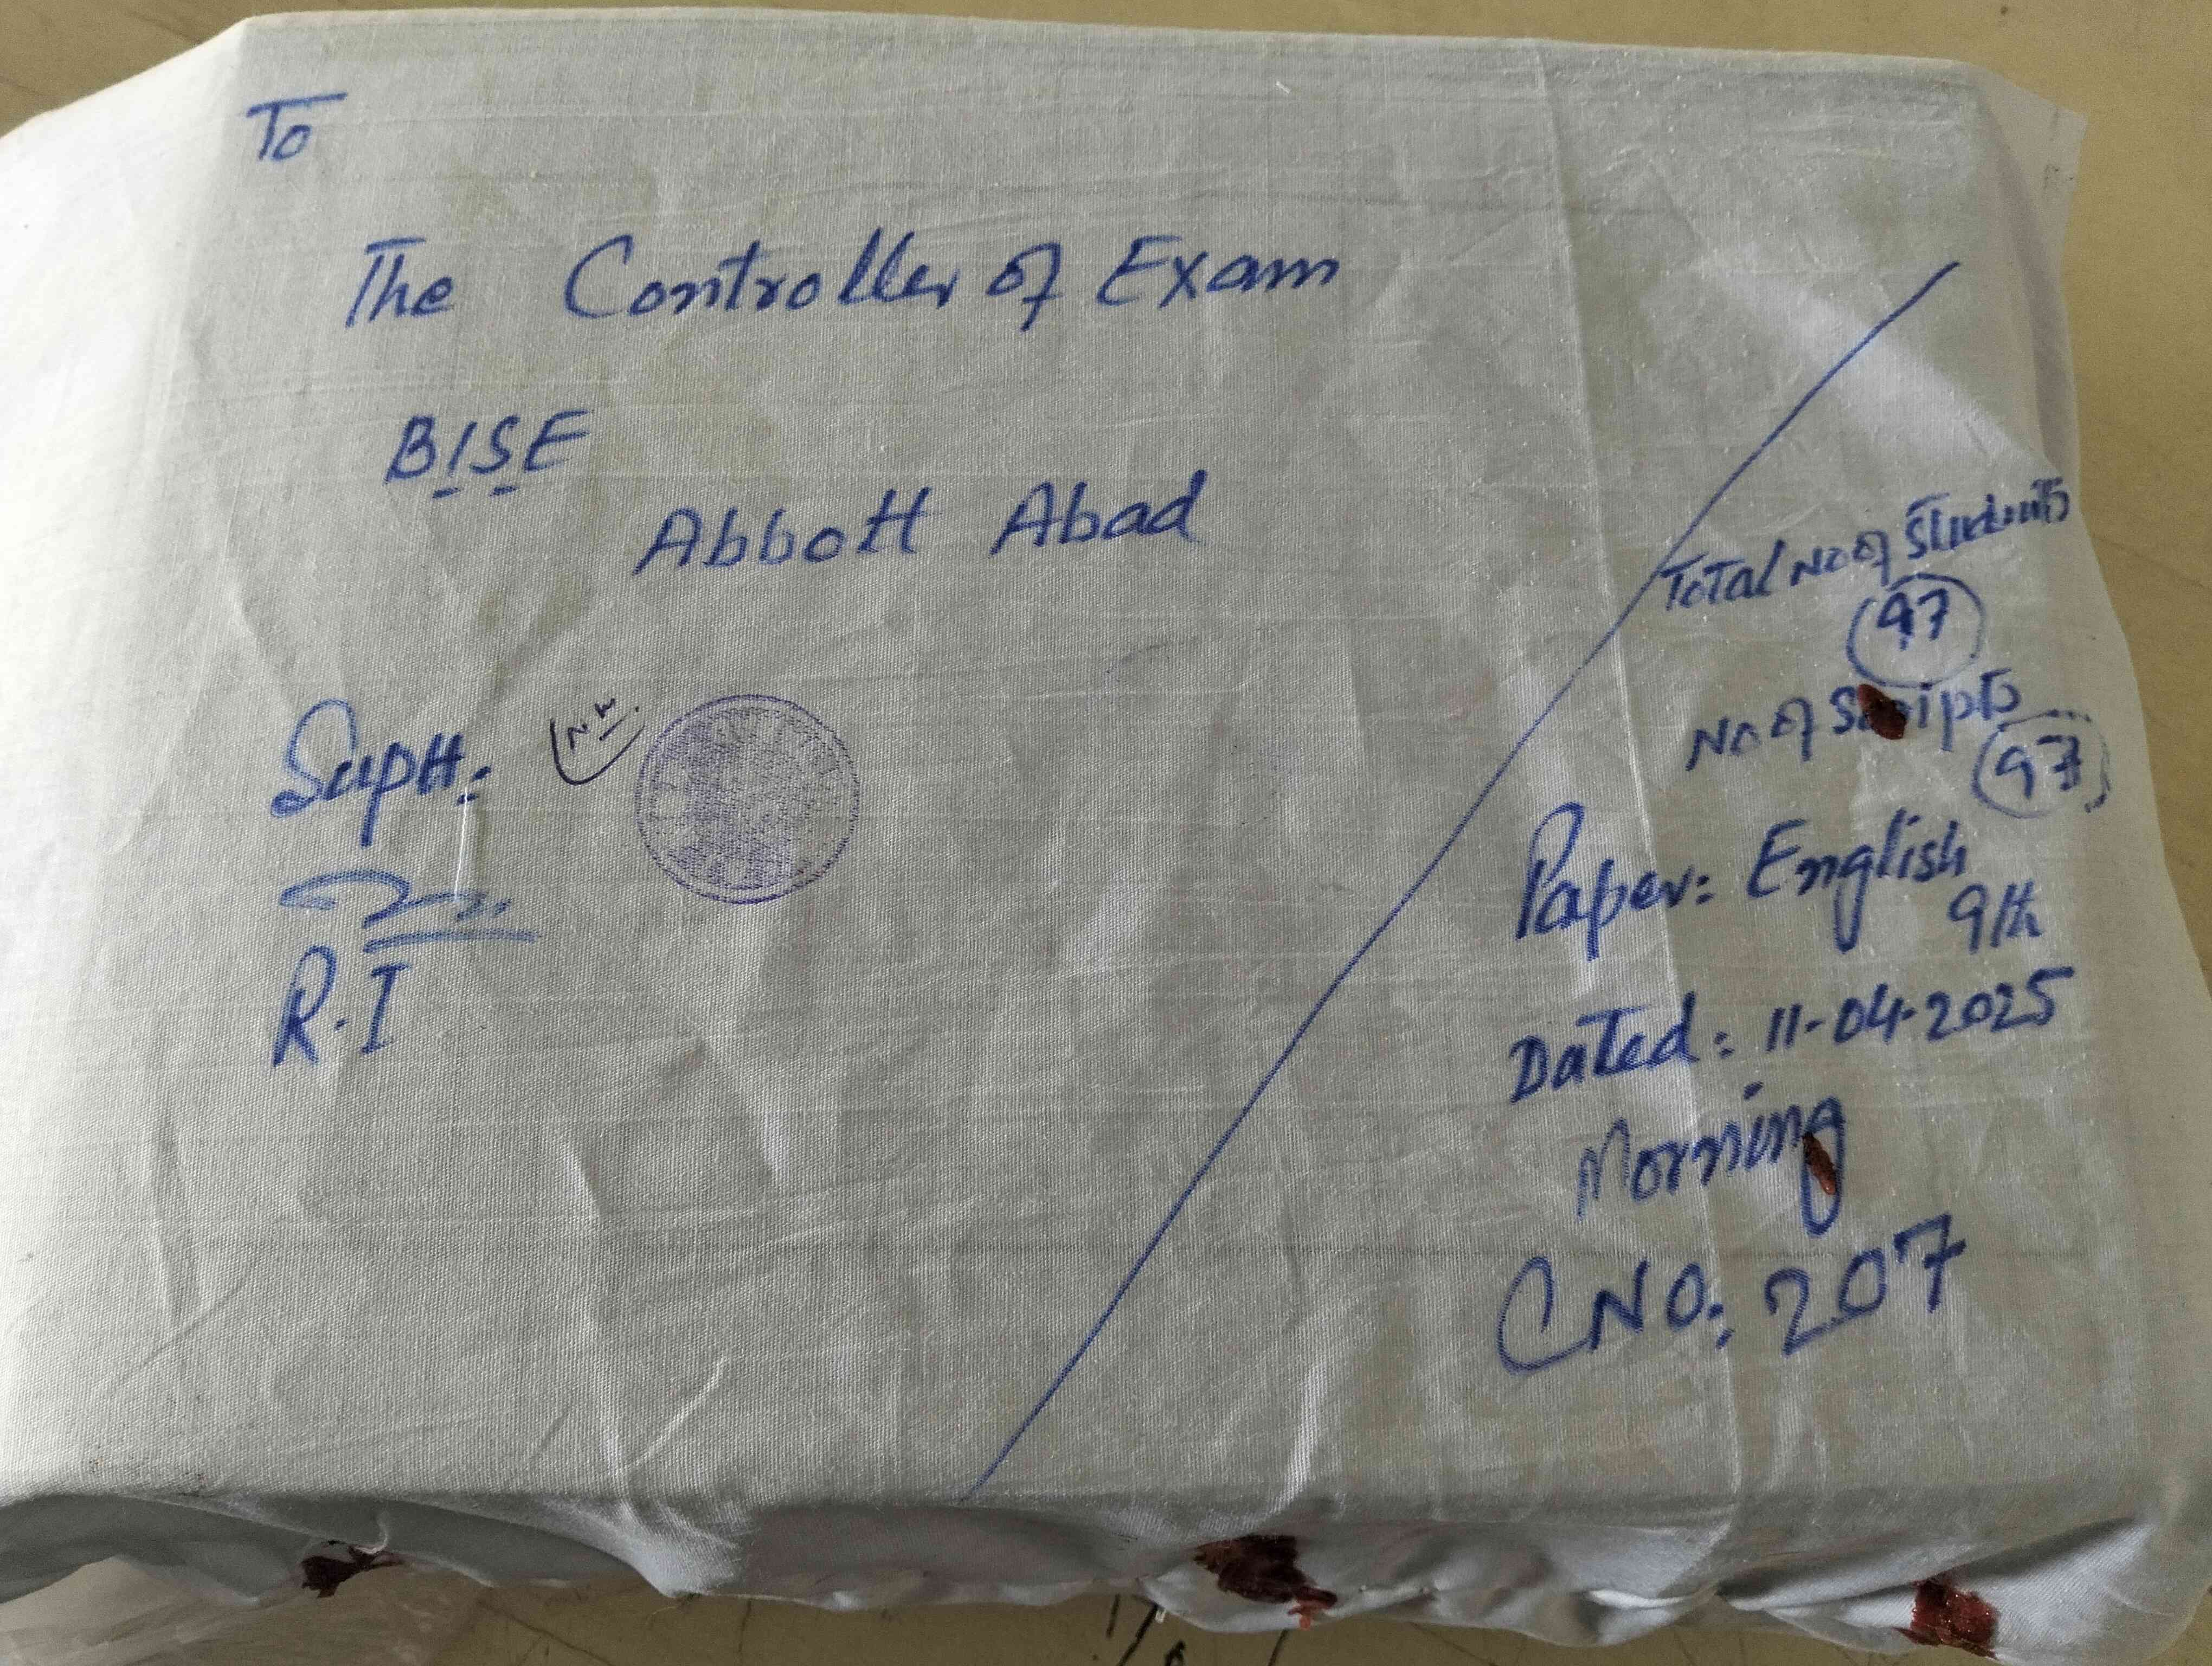 To
The Controller of Exam
B.I.S.E
Abbott Abad
Suptt:
R.I
Total No of Students
97
No of Scripts
97
Paper: English
9th
Dated: 11-04-2025
Morning
CNO: 207